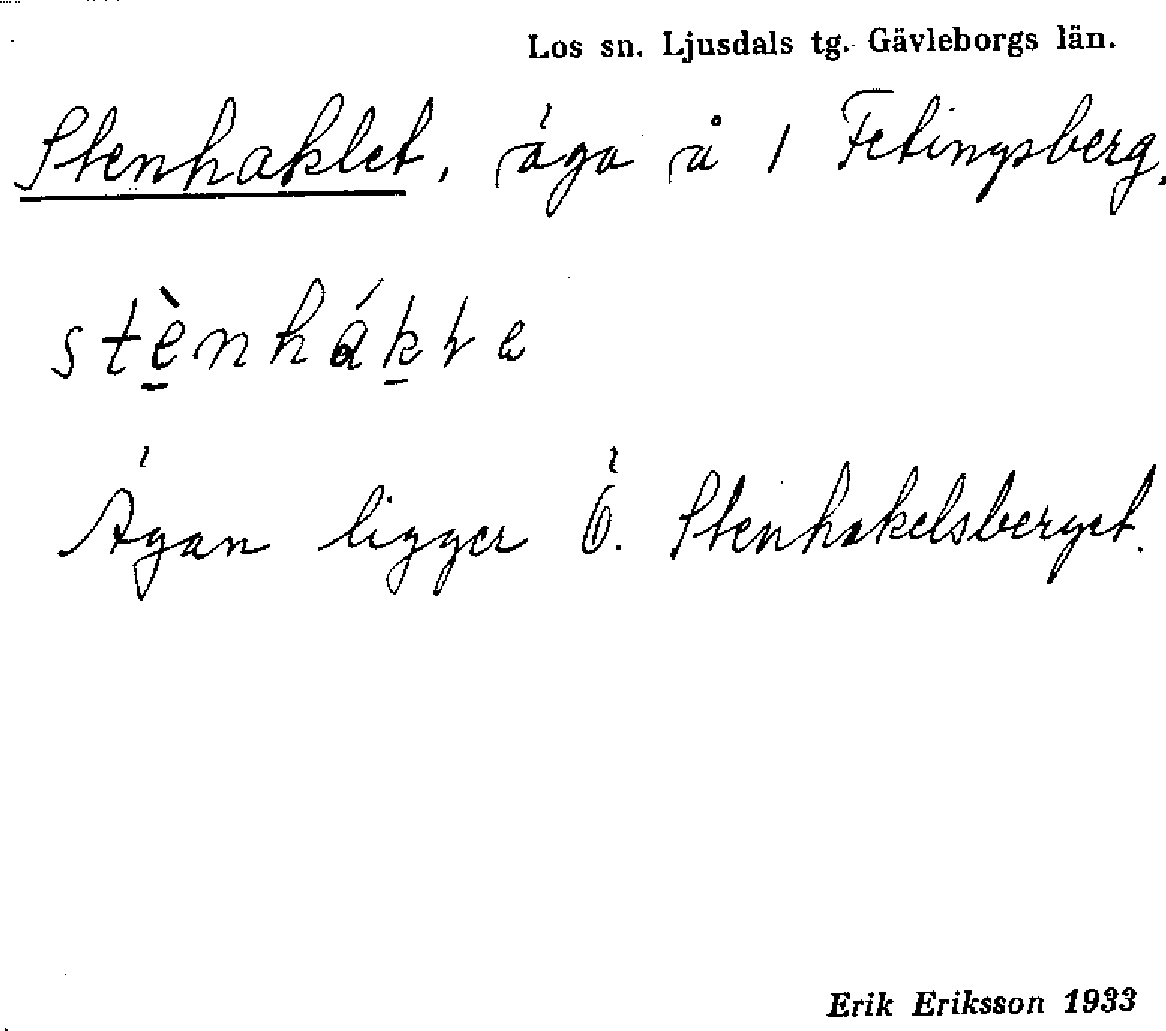 Los sn. Ljusdals tg. Gävleborgs län.
Stenhaklet, äga å 1 Fetingsberg.
stènhákle
Ägan ligger Ö. Stenhakelsberget.
Erik Eriksson 1933